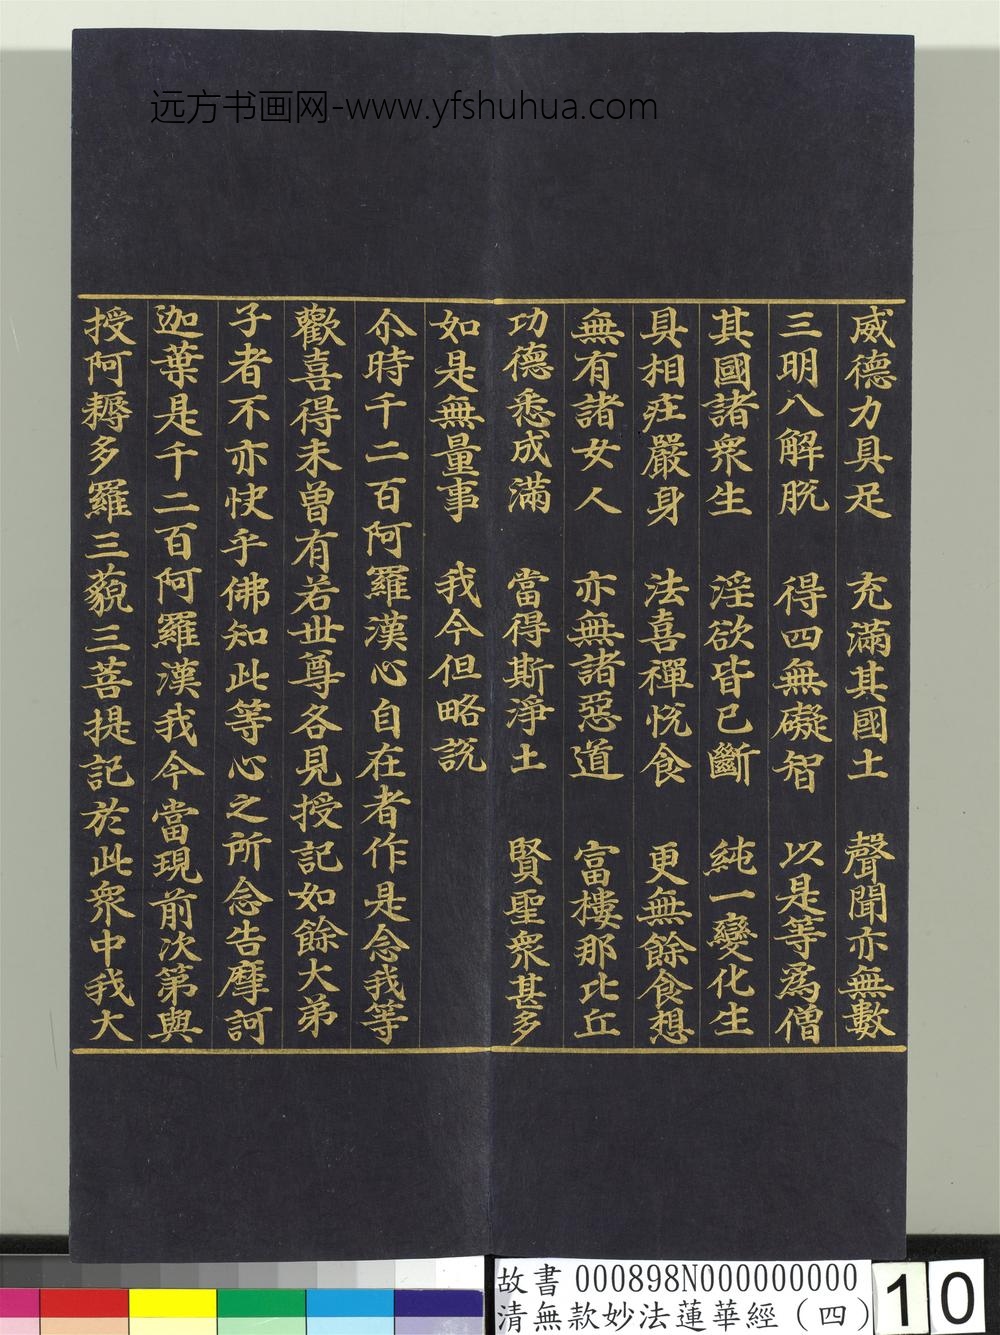 远方书画网-www.yfshuhua.com
威德力具足　充滿其國土　聲聞亦無數
三明八解脫　得四無礙智　以是等為僧
其國諸衆生　淫欲皆已斷　純一變化生
具相莊嚴身　法喜禪悅食　更無餘食想
無有諸女人　亦無諸惡道　富樓那比丘
功德悉成滿　當得斯淨土　賢聖衆甚多
如是無量事　我今但略說
尒時千二百阿羅漢心自在者作是念我等
歡喜得未曾有若世尊各見授記如餘大弟
子者不亦快乎佛知此等心之所念告摩訶
迦葉是千二百阿羅漢我今當現前次第與
授阿耨多羅三藐三菩提記於此衆中我大
故書 000898N000000000
清無款妙法蓮華經（四）
10